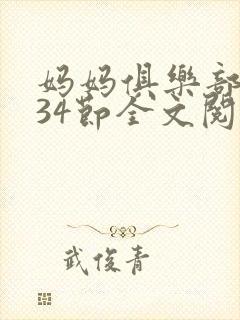 妈妈俱樂部
34節全文閱
武俊青